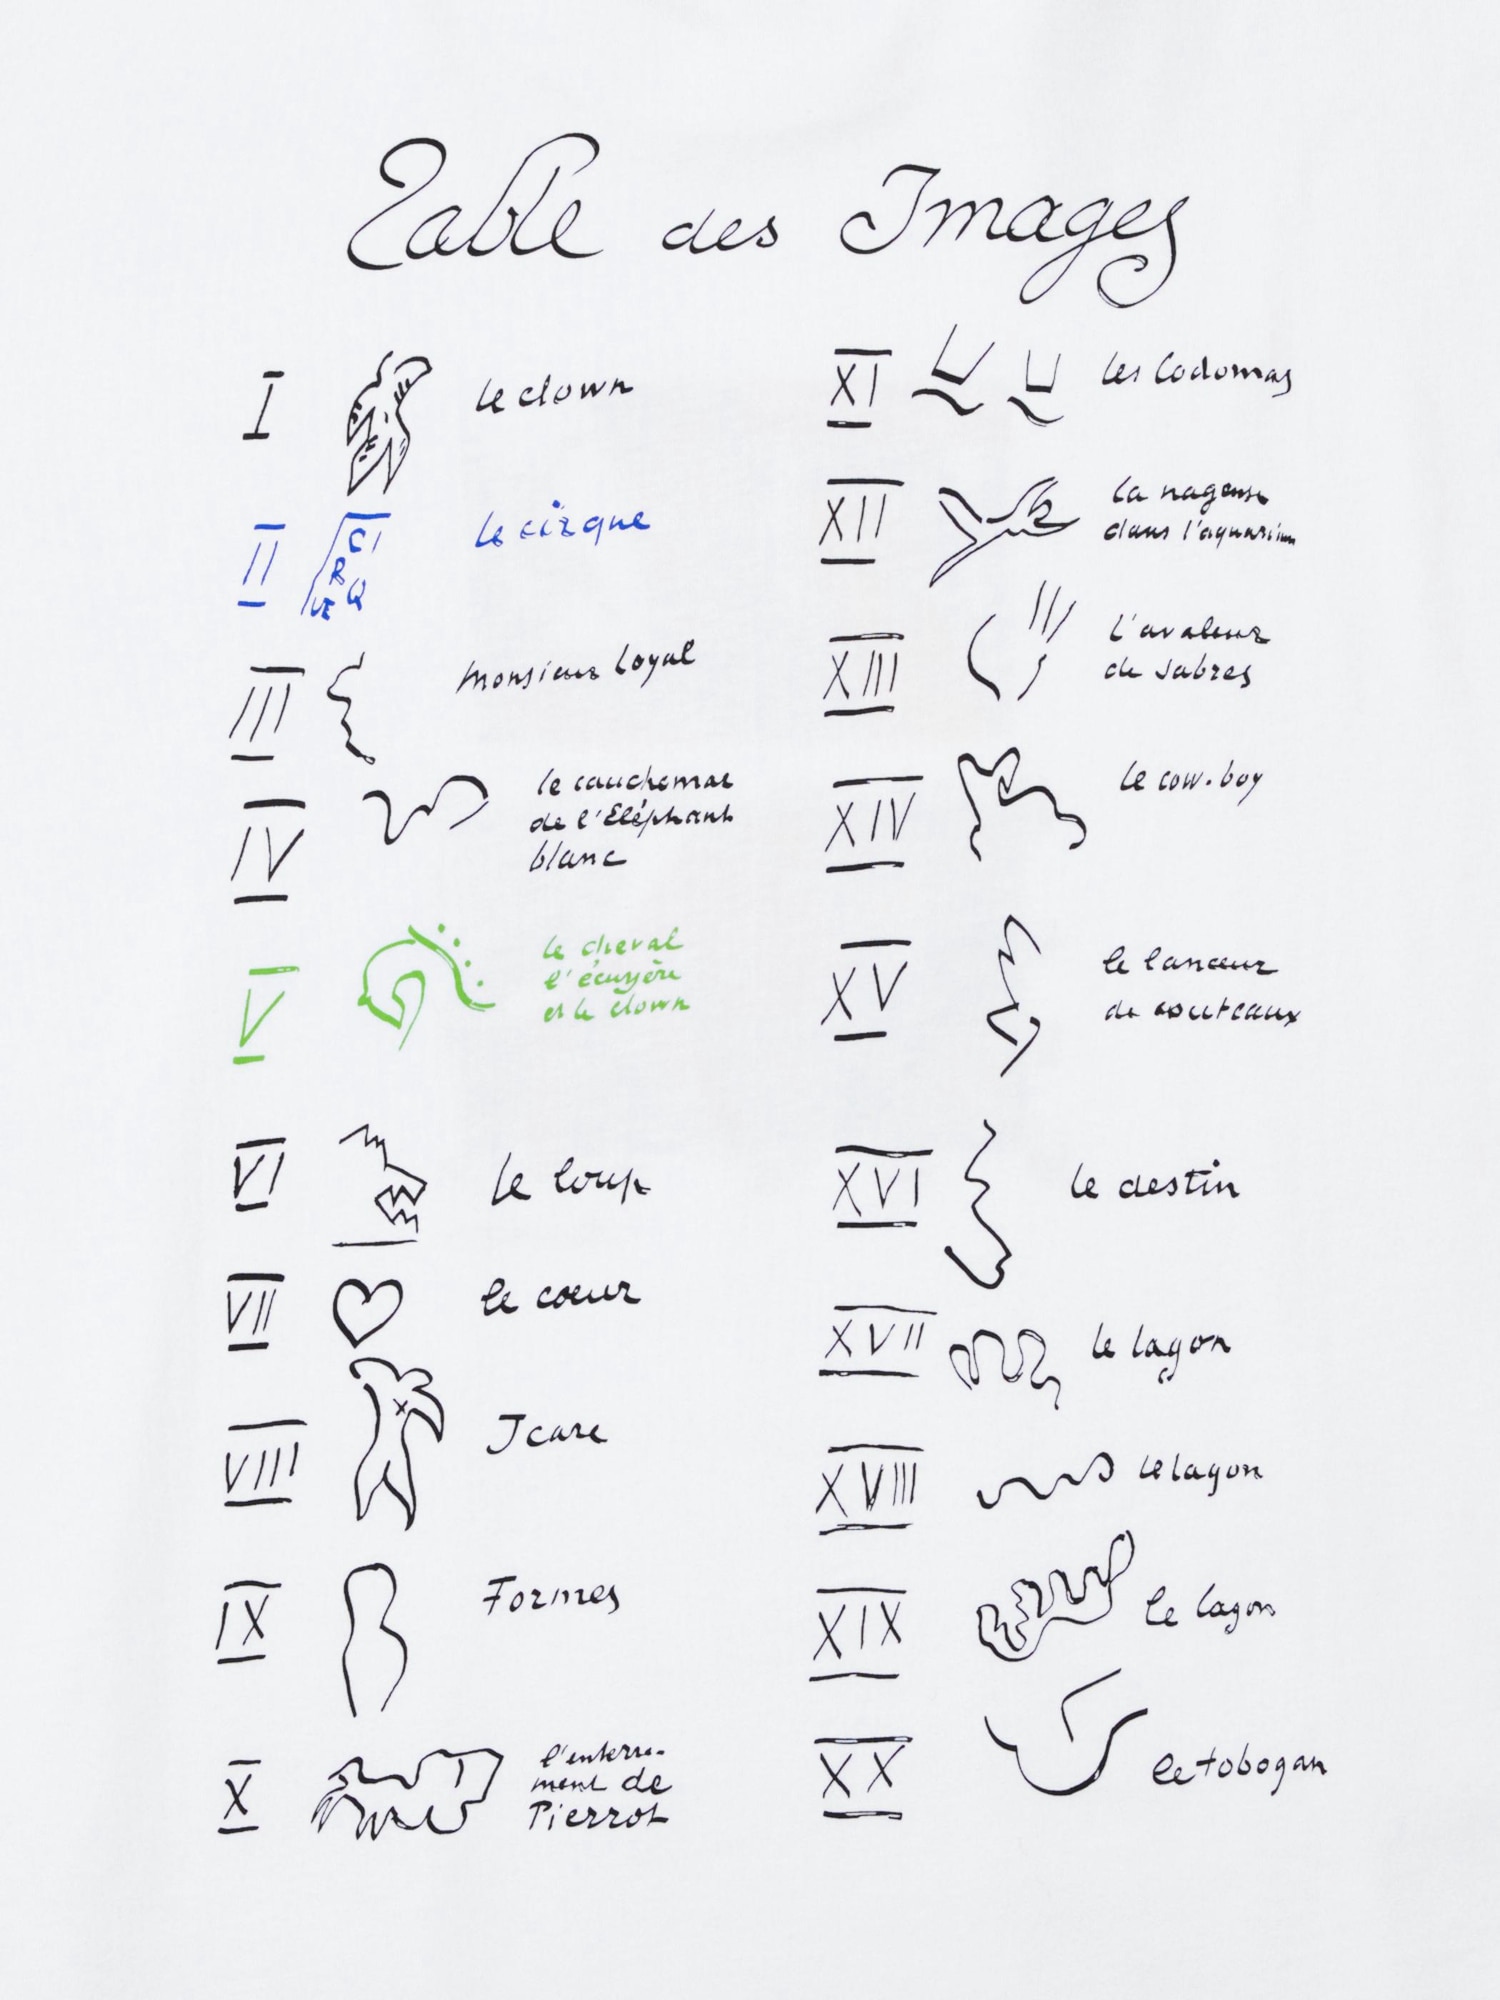 Table des Images
I le clown
II CI
R
Q
UE
le cirque
III Monsieur Loyal
IV le cauchemar
de l'Eléphant
blanc
V le cheval
l'écuyère
et le clown
VI le loup
VII le cœur
VIII Icare
IX Formes
X l'enterre-
ment de
Pierrot
XI les Codomas
XII la nageuse
dans l'aquarium
XIII l'avaleur
de sabres
XIV le cow-boy
XV le lanceur
de couteaux
XVI le destin
XVII le lagon
XVIII le lagon
XIX le lagon
XX le tobogan